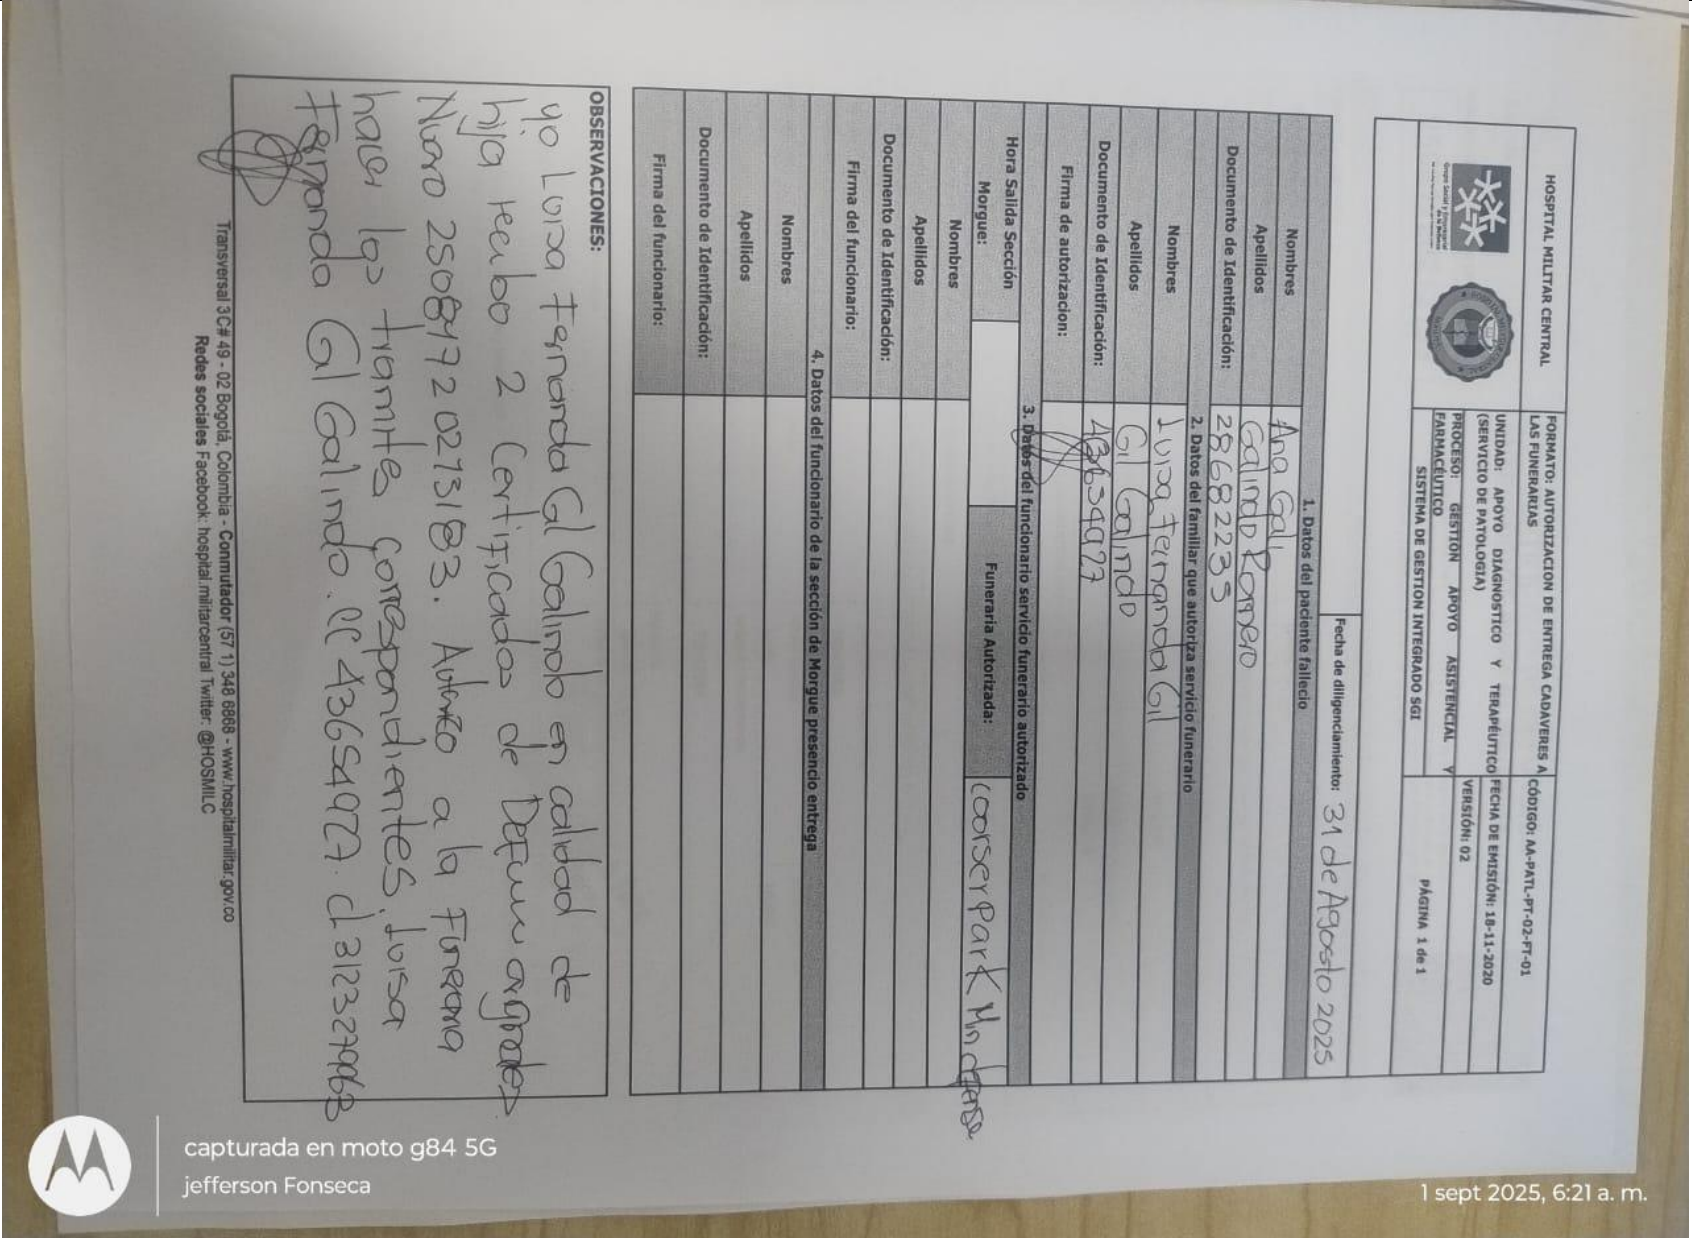 HOSPITAL MILITAR CENTRAL
FORMATO: AUTORIZACION DE ENTREGA CADAVERES A LAS FUNERARIAS
CÓDIGO: AA-PATL-PT-02-FT-01
UNIDAD: APOYO DIAGNOSTICO Y TERAPÉUTICO (SERVICIO DE PATOLOGIA)
FECHA DE EMISIÓN: 18-11-2020
PROCESO: GESTION APOYO ASISTENCIAL Y FARMACÉUTICO
VERSIÓN: 02
SISTEMA DE GESTION INTEGRADO SGI
PÁGINA 1 de 1
Grupo Social y Empresarial
de la Defensa
Fecha de diligenciamiento: 31 de Agosto 2025
1. Datos del paciente fallecio
Nombres Ana Gali
Apellidos Galindo Romero
Documento de Identificación: 28682235
2. Datos del familiar que autoriza servicio funerario
Nombres Luisa Fernanda Gil
Apellidos Gil Galindo
Documento de Identificación: 43654927
Firma de autorizacion:
3. Datos del funcionario servicio funerario autorizado
Hora Salida Sección Morgue:
Funeraria Autorizada: Coorserpark Mindefensa
Nombres
Apellidos
Documento de Identificación:
Firma del funcionario:
4. Datos del funcionario de la sección de Morgue presencio entrega
Nombres
Apellidos
Documento de Identificación:
Firma del funcionario:
OBSERVACIONES:
yo Luisa Fernanda Gil Galindo en calidad de
hija recibo 2 Certificados de Defuni
a la Funeraria
hacer los tramites correspondientes. Luisa
Fernanda Gil Galindo. CC 43654927. cl 3123279963
Transversal 3C# 49 - 02 Bogotá, Colombia - Conmutador (57 1) 348 6868 - www.hospitalmilitar.gov.co
Redes sociales Facebook: hospital.militarcentral Twitter: @HOSMILC
capturada en moto g84 5G
jefferson Fonseca
1 sept 2025, 6:21 a. m.